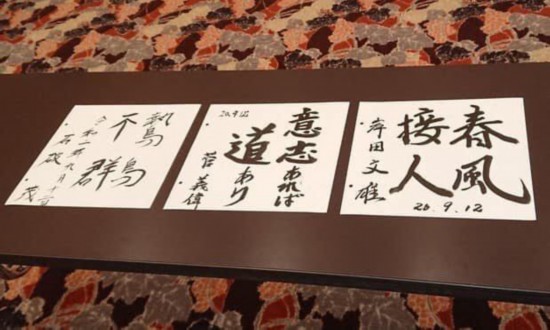 春風
接人
岸田文雄
20.9.12
意志あれば
道あり
菅義偉
鷙鳥
不群
令和二年九月十二日
石破 茂